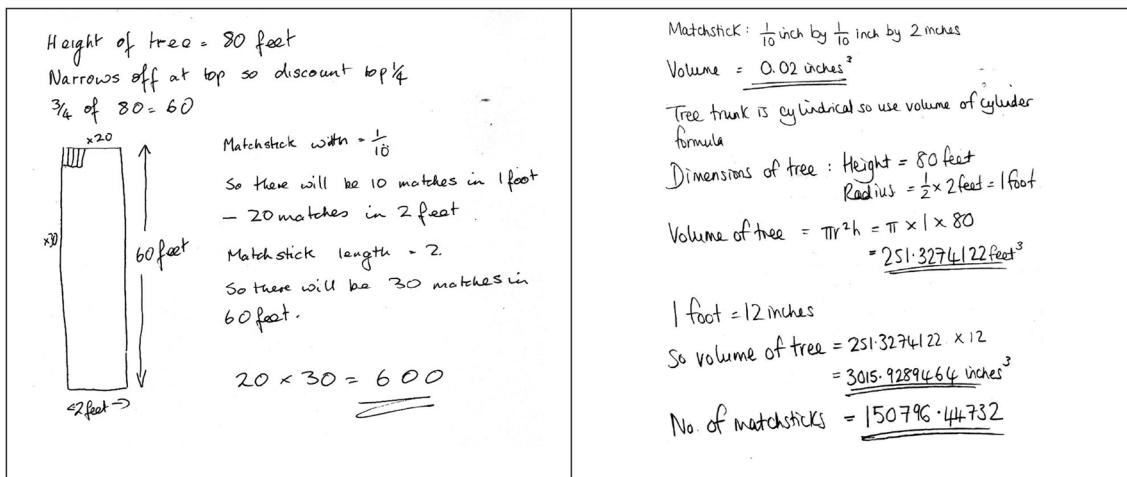 Height of tree = 80 feet
Narrows off at top so discount top 1/4
3/4 of 80 = 60
×20
×30
60 feet
<2 feet→
Matchstick width = 1/10
So there will be 10 matches in 1 foot
– 20 matches in 2 feet
Matchstick length = 2.
So there will be 30 matches in
60 feet.
20 × 30 = 600
Matchstick: 1/10 inch by 1/10 inch by 2 inches
Volume = 0.02 inches³
Tree trunk is cylindrical so use volume of cylinder
formula
Dimensions of tree : Height = 80 feet
Radius = 1/2 × 2 feet = 1 foot
Volume of tree = πr²h = π × 1 × 80
= 251.3274122 feet³
1 foot = 12 inches
So volume of tree = 251.3274122 × 12
= 3015.9289464 inches³
No. of matchsticks = 150796.44732